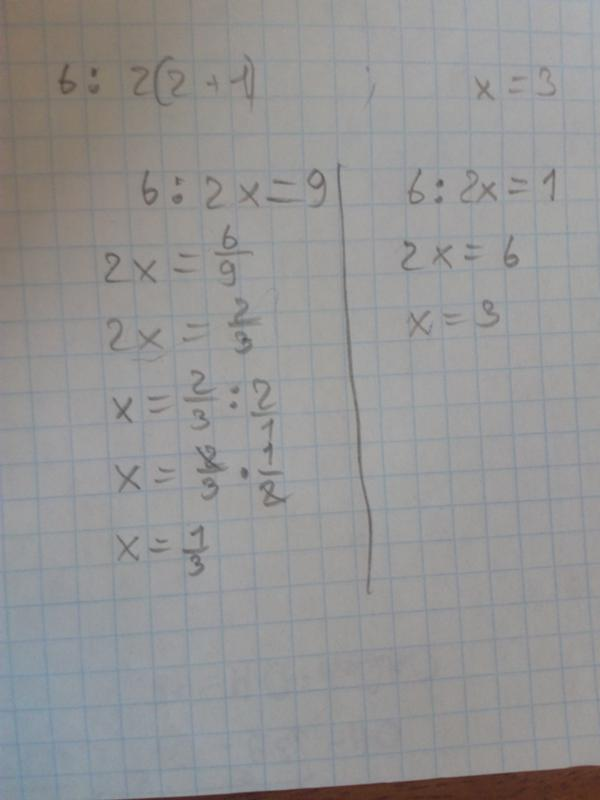 6 : 2(2+1) ; x = 3
6 : 2x = 9
2x = 6/9
2x = 2/3
x = 2/3 : 2
x = 2/3 · 1/2
x = 1/3
6 : 2x = 1
2x = 6
x = 3